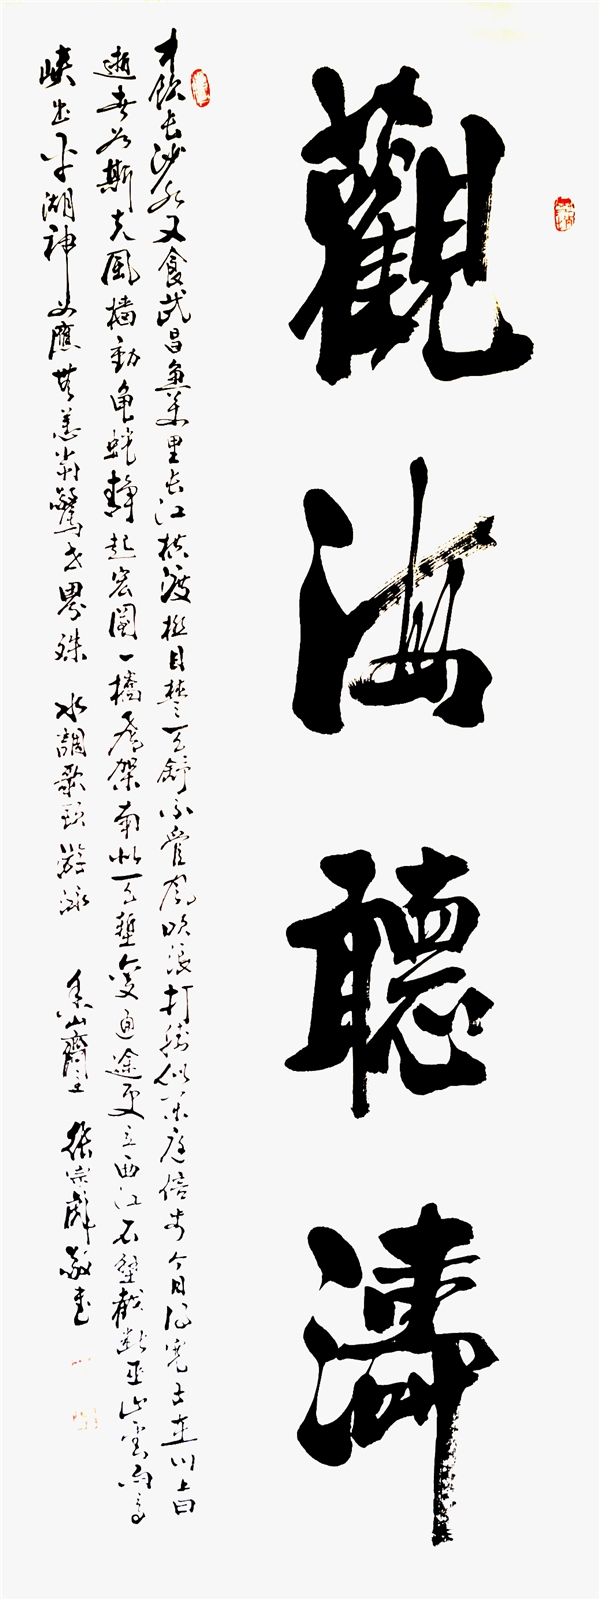 觀海聽濤
才飲长沙水又食武昌魚萬里长江横渡極目楚天舒不管風吹浪打勝似闲庭信步今日得寬子在川上曰
逝者如斯夫風檣動龜蛇靜起宏圖一橋飛架南北天塹變通途更立西江石壁截斷巫山雲雨高
峽出平湖神女應無恙當驚世界殊 水調歌頭 游泳 山齋主 宗 敬書